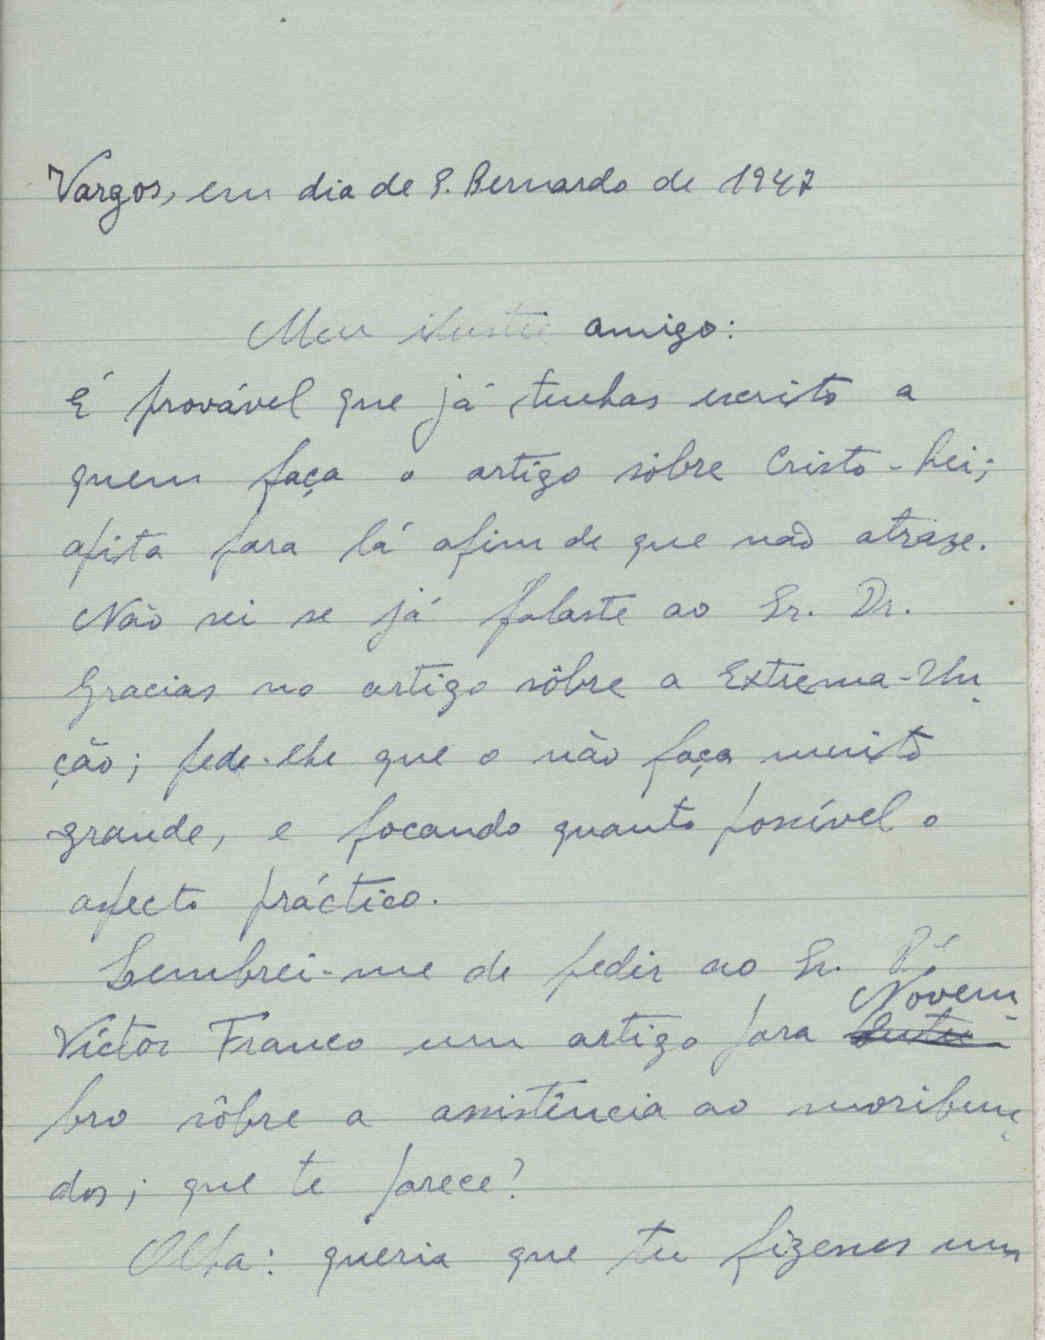 Vargos, em dia de S. Bernardo de 1947
Meu ilustre amigo:
É provável que já tenhas escrito a
quem faça o artigo sôbre Cristo-Rei;
apita para lá afim de que não atraze.
Não sei se já falaste ao Sr. Dr.
Gracias no artigo sôbre a Extrema-Un-
ção; pede-lhe que o não faça muito
grande, e focando quanto possível o
aspecto práctico.
Lembrei-me de pedir ao Sr. Pé
Víctor Franco um artigo para ~~Outu~~ Novem-
bro sôbre a assistência ao moribun-
dos; que te parece?
Olha: queria que tu fizesses um